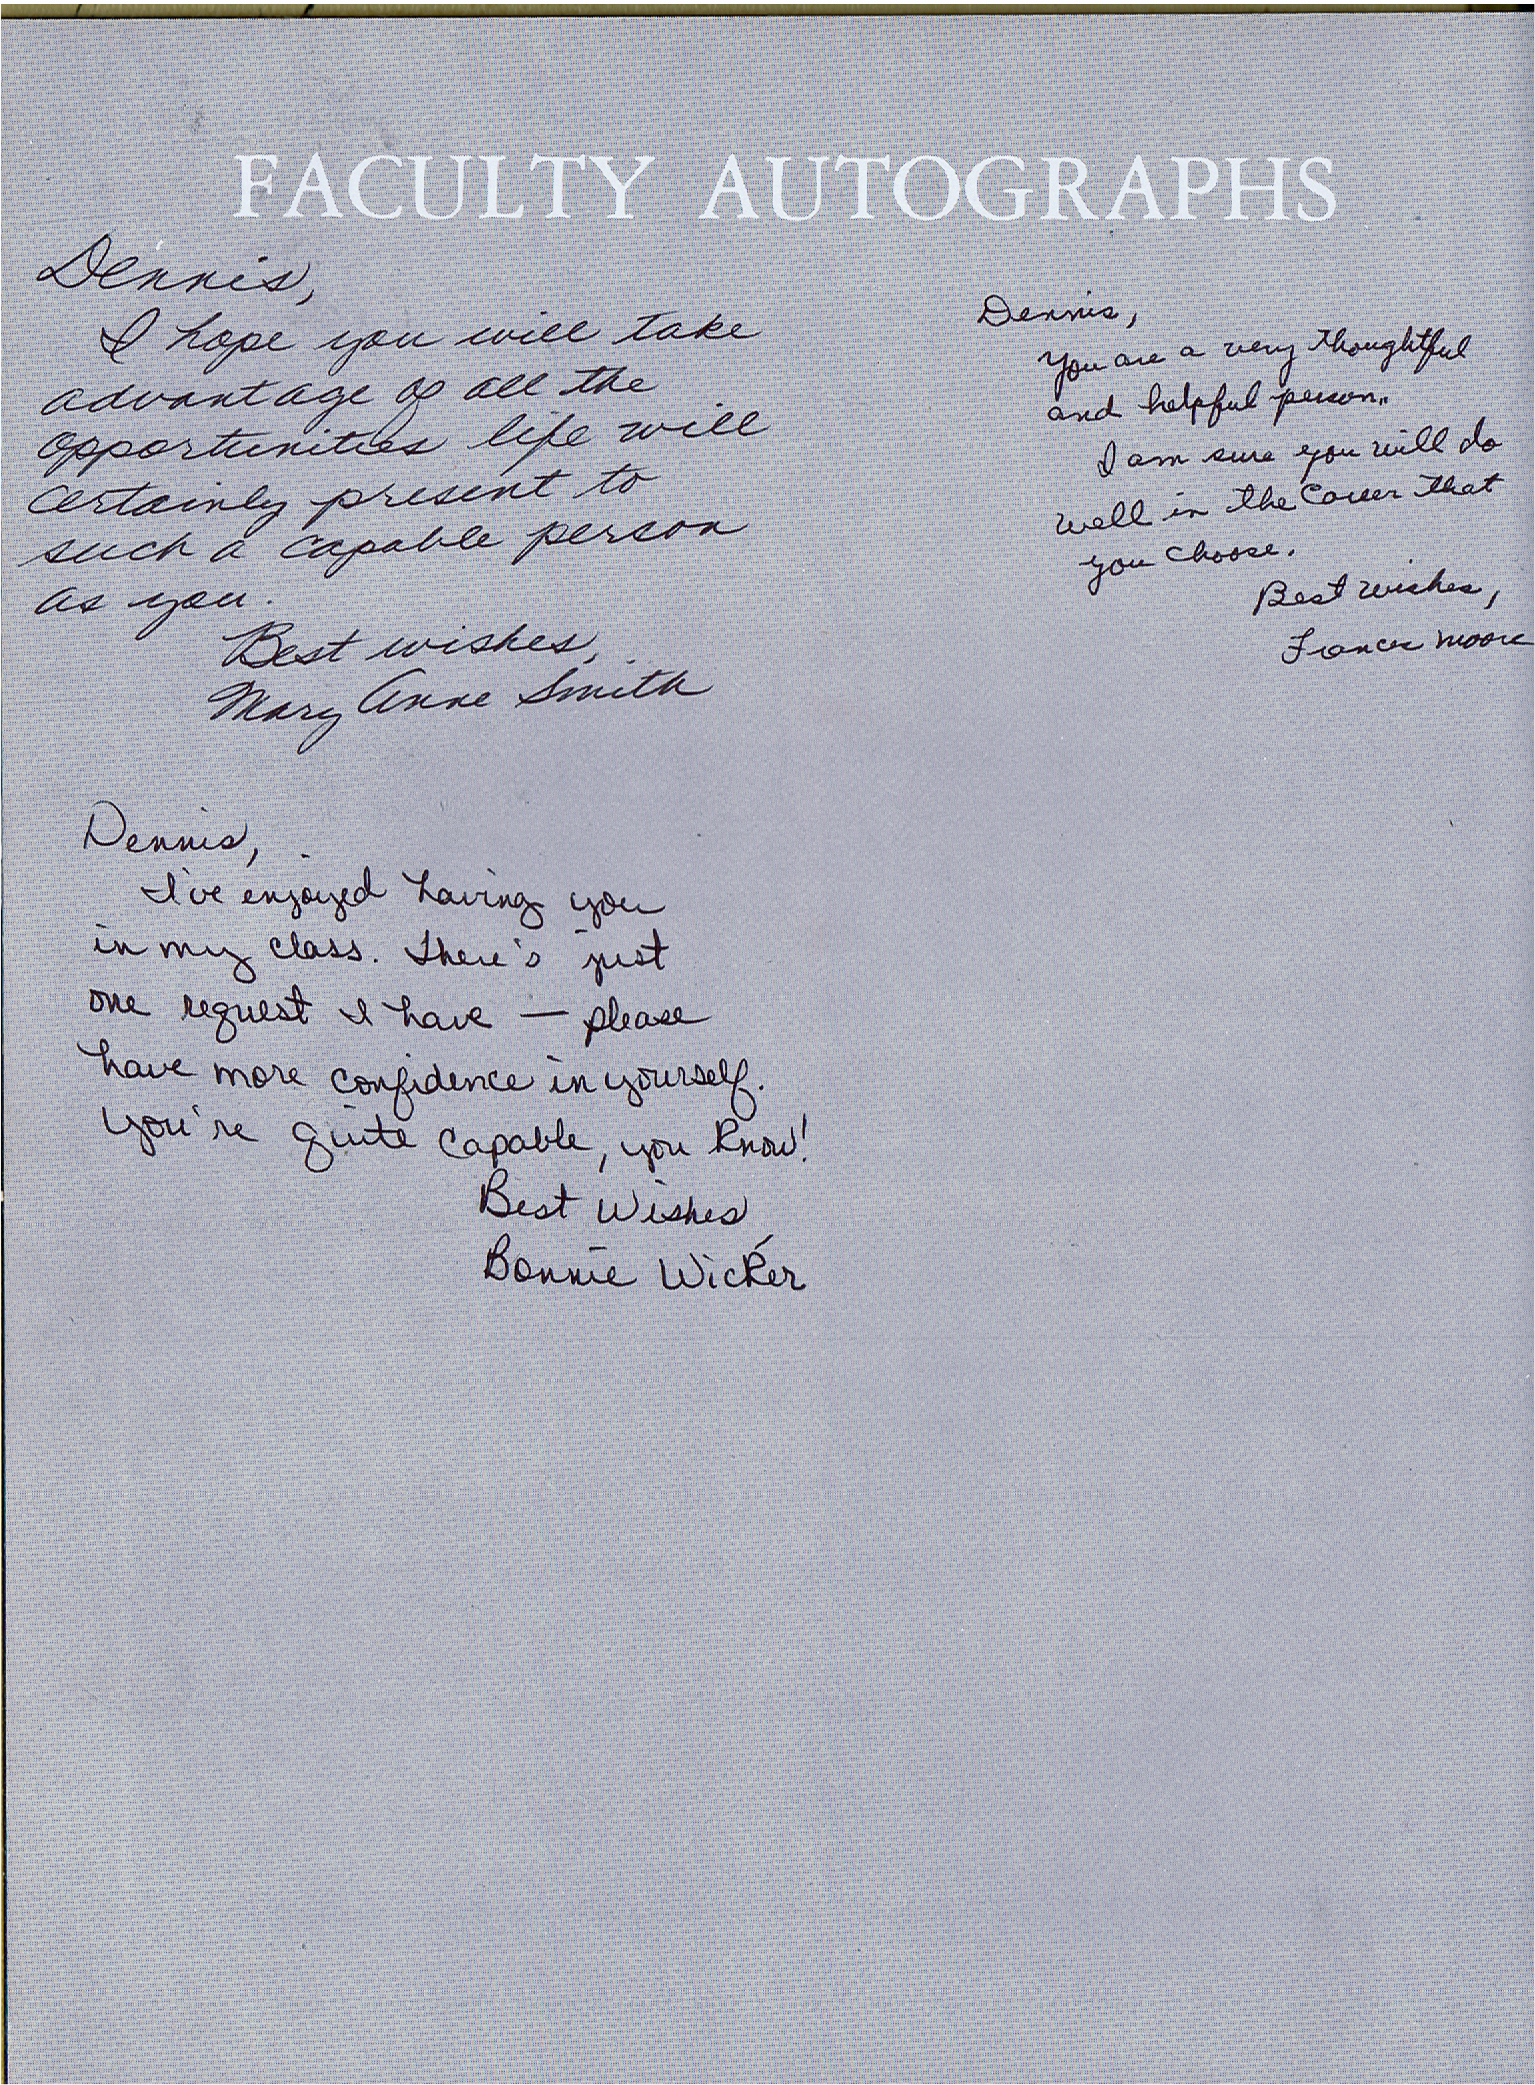 FACULTY AUTOGRAPHS
Dennis,
I hope you will take
advantage of all the
opportunities life will
certainly present to
such a capable person
as you.
Best wishes,
Mary Anne Smith
Dennis,
You are a very thoughtful
and helpful person.
I am sure you will do
well in the career that
you choose.
Best wishes,
Frances Moore
Dennis,
I've enjoyed having you
in my class. There's just
one request I have — please
have more confidence in yourself.
You're quite capable, you know!
Best Wishes,
Bonnie Wicker